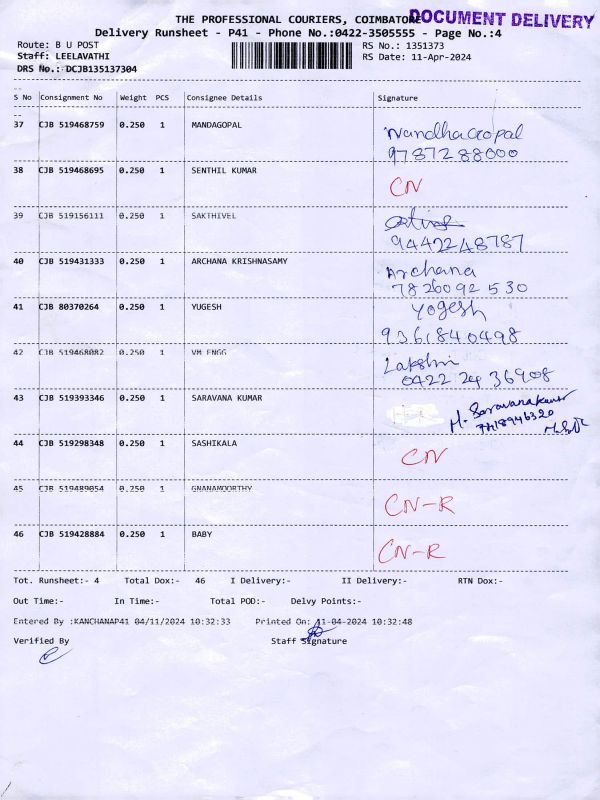 THE PROFESSIONAL COURIERS, COIMBATORE
DOCUMENT DELIVERY
Delivery Runsheet - P41 - Phone No.:0422-3505555 - Page No.:4
Route: B U POST
RS No.: 1351373
Staff: LEELAVATHI
RS Date: 11-Apr-2024
DRS No.: DCJB135137304
S No Consignment No Weight PCS Consignee Details Signature
37 CJB 519468759 0.250 1 MANDAGOPAL NandhaGopal
9787288000
38 CJB 519468695 0.250 1 SENTHIL KUMAR CN
39 CJB 519156111 0.250 1 SAKTHIVEL
9442248787
40 CJB 519431333 0.250 1 ARCHANA KRISHNASAMY Archana
7826092530
41 CJB 80370264 0.250 1 YUGESH Yogesh
9361840498
42 CJB 519468082 0.250 1 VM ENGG Lakshmi
0422 24 36908
43 CJB 519393346 0.250 1 SARAVANA KUMAR M. Saravanakumar
44 CJB 519298348 0.250 1 SASHIKALA CN
45 CJB 519489054 0.250 1 GNANAMOORTHY CN-R
46 CJB 519428884 0.250 1 BABY CN-R
Tot. Runsheet:- 4 Total Dox:- 46 I Delivery:- II Delivery:- RTN Dox:-
Out Time:- In Time:- Total POD:- Delvy Points:-
Entered By :KANCHANAP41 04/11/2024 10:32:33 Printed On: 11-04-2024 10:32:48
Verified By Staff Signature